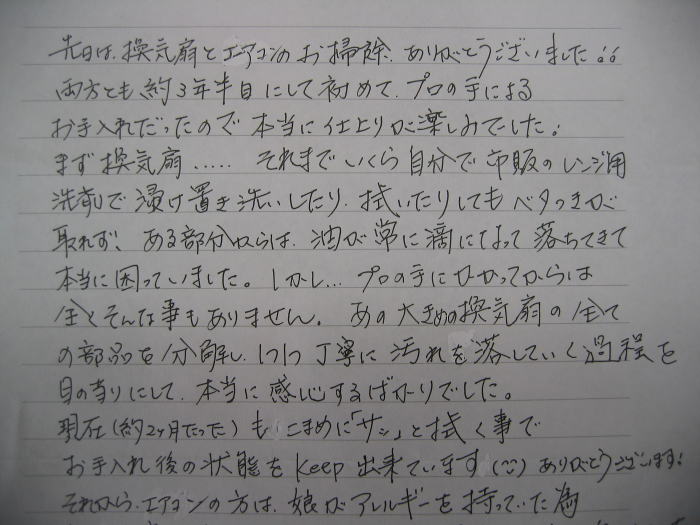 先日は、換気扇とエアコンのお掃除、ありがとうございました!!
両方とも約3年半目にして初めて、プロの手による
お手入れだったので本当に仕上りが楽しみでした!
まず換気扇‥‥‥ それまでいくら自分で市販のレンジ用
洗剤で漬け置き洗いしたり、拭いたりしてもベタつきが
取れず、ある部分からは、油が常に滴になって落ちてきて
本当に困っていました。しかし… プロの手にかかってからは
全くそんな事もありません。あの大きめの換気扇の全て
の部品を分解し、1つ1つ丁寧に汚れを落していく過程を
目の当りにして、本当に感心するばかりでした。
現在(約2ヶ月たった)も、こまめに「サッ」と拭く事で
お手入れ後の状態をkeep出来ています(^^)ありがとうございます!
それから、エアコンの方は、娘がアレルギーを持っていた為